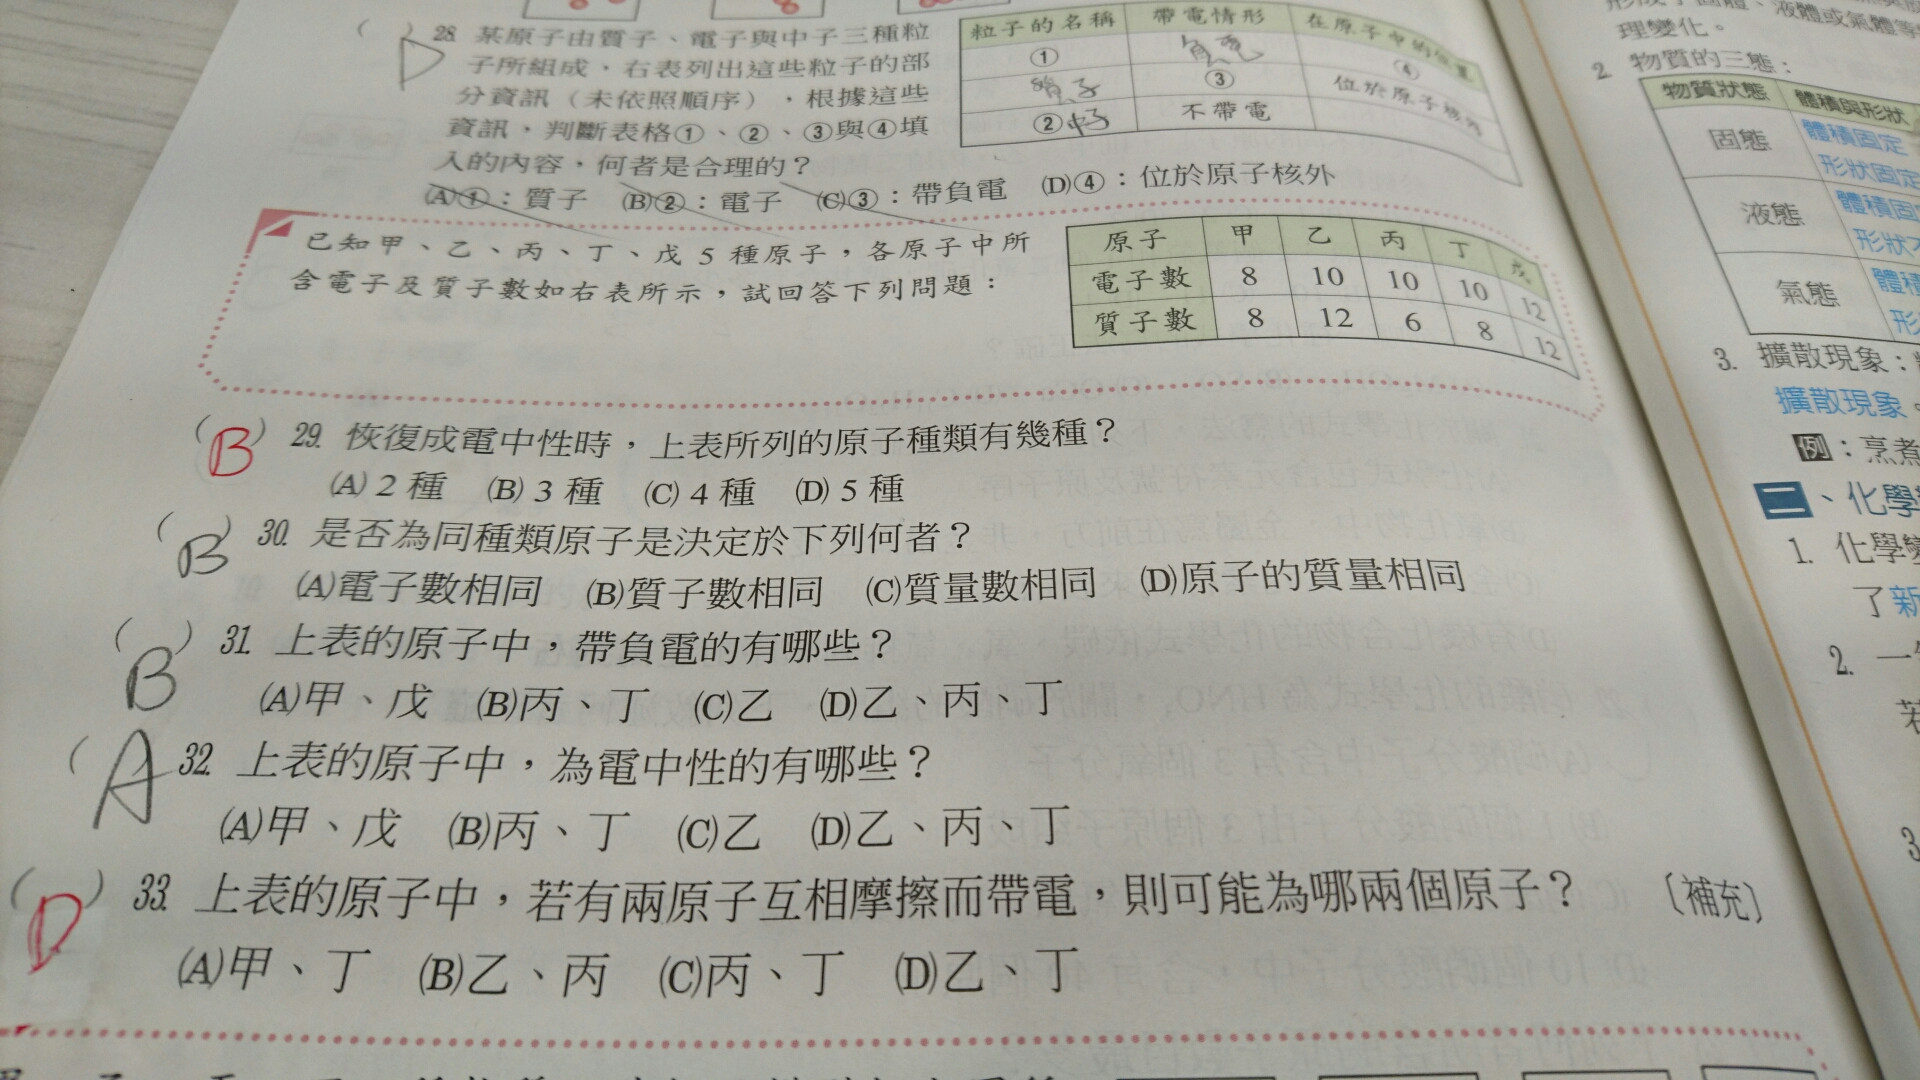 28. 某原子由質子、電子與中子三種粒
子所組成，右表列出這些粒子的部
分資訊（未依照順序），根據這些
資訊，判斷表格①、②、③與④填
入的內容，何者是合理的？
(A)①：質子 (B)②：電子 (C)③：帶負電 (D)④：位於原子核外
( ) D
粒子的名稱 帶電情形 在原子中的位置
① 負電 ④
質子 ③ 位於原子核外
②中子 不帶電
已知甲、乙、丙、丁、戊 5 種原子，各原子中所
含電子及質子數如右表所示，試回答下列問題：
原子 甲 乙 丙 丁 戊
電子數 8 10 10 10 12
質子數 8 12 6 8 12
(B) 29. 恢復成電中性時，上表所列的原子種類有幾種？
(A) 2 種 (B) 3 種 (C) 4 種 (D) 5 種
(B) 30. 是否為同種類原子是決定於下列何者？
(A)電子數相同 (B)質子數相同 (C)質量數相同 (D)原子的質量相同
(B) 31. 上表的原子中，帶負電的有哪些？
(A)甲、戊 (B)丙、丁 (C)乙 (D)乙、丙、丁
(A 32. 上表的原子中，為電中性的有哪些？
(A)甲、戊 (B)丙、丁 (C)乙 (D)乙、丙、丁
(D) 33. 上表的原子中，若有兩原子互相摩擦而帶電，則可能為哪兩個原子？〔補充〕
(A)甲、丁 (B)乙、丙 (C)丙、丁 (D)乙、丁
理變化。
2. 物質的三態：
物質狀態 體積與形狀
固態 體積固定
形狀固定
液態 體積固
形狀不
氣態 體積
形
3. 擴散現象：
擴散現象。
例：烹煮
二、化學
1. 化學變
了新
2. 一
若
3.